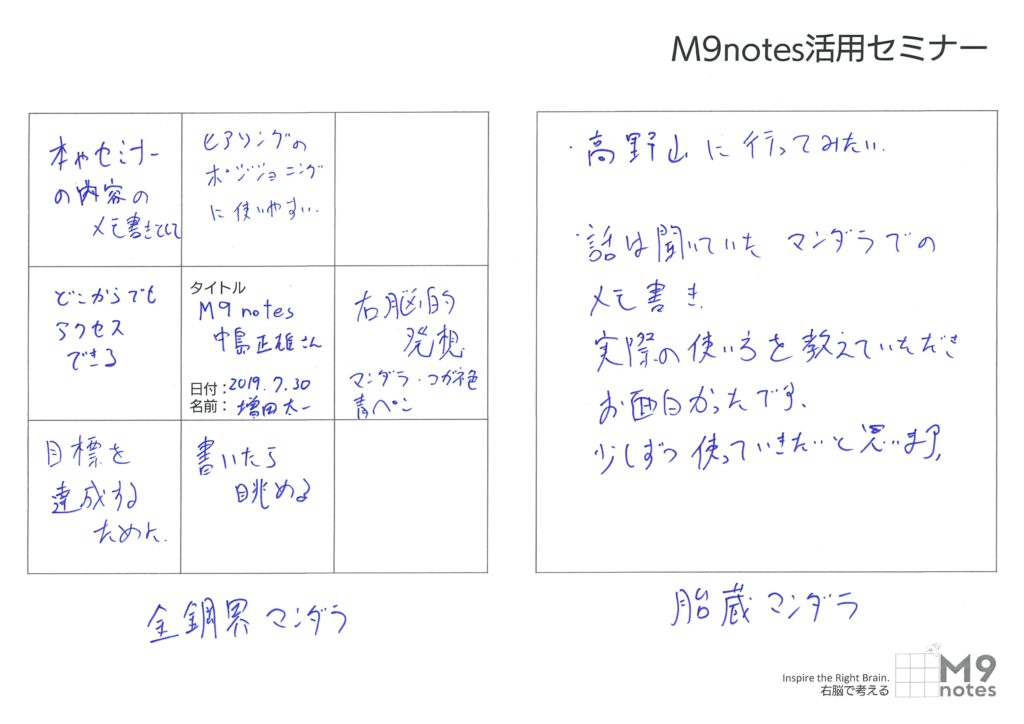 M9notes活用セミナー
本やセミナー
の内容の
メモ書きとして
ヒアリングの
ポジショニング
に使いやすい.
どこからでも
アクセス
できる
タイトル
M9 notes
中島正雄さん
日付：2019.7.30
名前：増田太一
右脳的
発想
マンダラ・つがね色
青ペン
目標を
達成する
ために.
書いたら
眺める
金鋼界マンダラ
・高野山に行ってみたい.
・話は聞いていたマンダラでの
メモ書き
実際の使い方を教えていただき
お面白かったです.
少しずつ使っていきたいと思います,
胎蔵マンダラ
Inspire the Right Brain.
右脳で考える
M9
notes